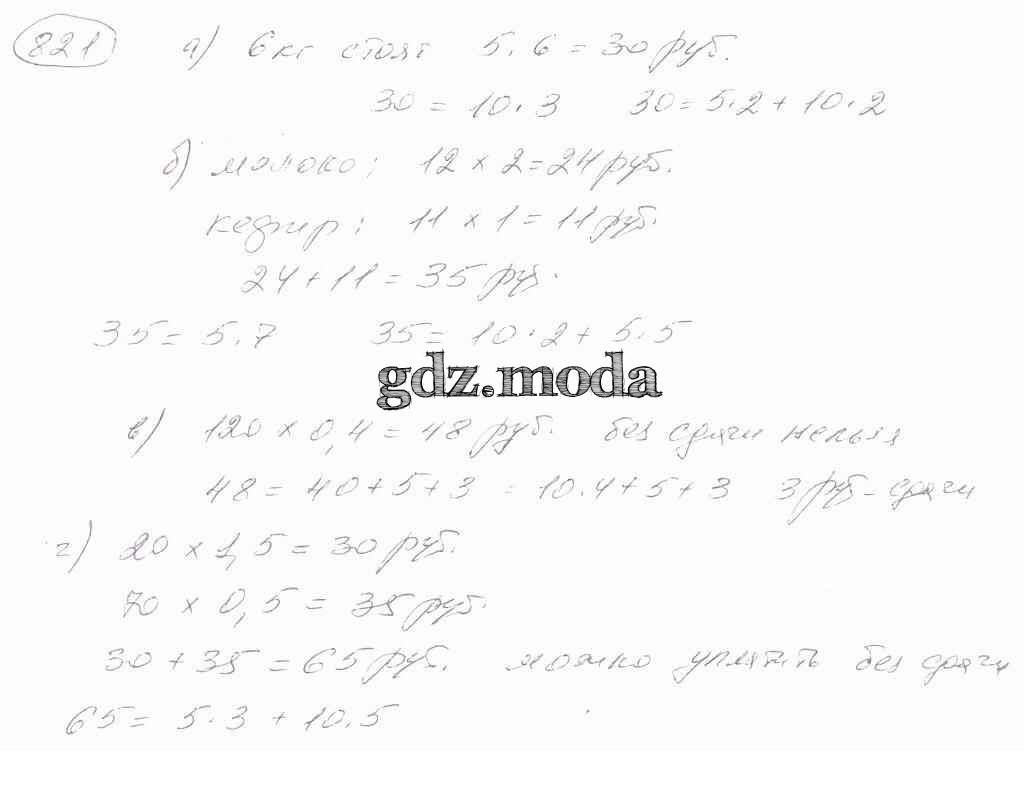 821 а) 6 кг стоят 5.6 = 30 руб.
30 = 10.3 30 = 5.2 + 10.2
б) молоко: 12 × 2 = 24 руб.
кефир: 11 × 1 = 11 руб.
24 + 11 = 35 руб.
35 = 5.7 35 = 10.2 + 5.5
gdz.moda
в) 120 × 0,4 = 48 руб. без сдачи нельзя
48 = 40 + 5 + 3 = 10.4 + 5 + 3 3 руб - сдачи
г) 20 × 1,5 = 30 руб.
70 × 0,5 = 35 руб.
30 + 35 = 65 руб. можно уплатить без сдачи
65 = 5.3 + 10.5